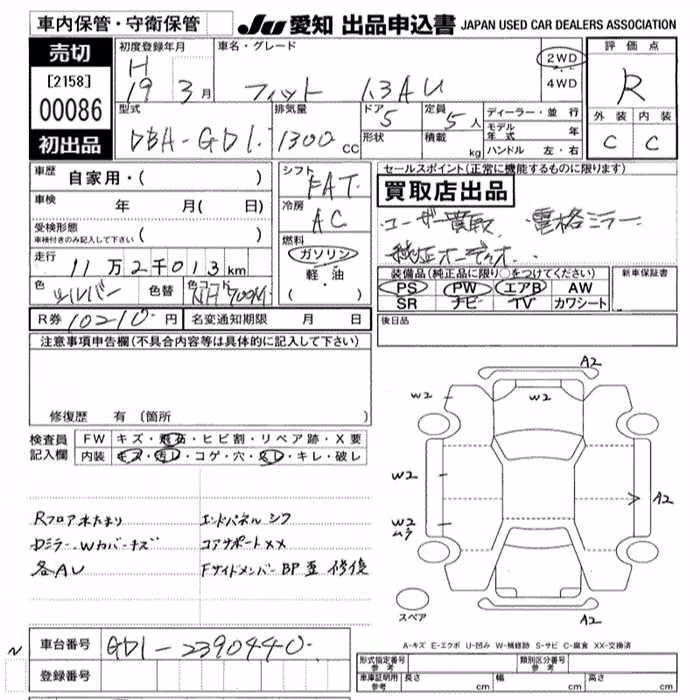 車内保管・守衛保管
JU 愛知 出品申込書 JAPAN USED CAR DEALERS ASSOCIATION
売切
[2158]
00086
初出品
初度登録年月
H
19 3月
車名・グレード
フィット 1.3AU
2WD
4WD
評価点
R
型式
DBA-GD1.
排気量
1300cc
ドア
5
定員
5人
形状
積載
kg
ディーラー・並行
モデル年式 年
ハンドル 左・右
外装 内装
C C
車歴 自家用・( )
車検 年 月( 日)
受検形態
車検付きのみ記入して下さい ( )
走行 11万2千013km
色 シルバー 色替 色コード NH700M
R券 10210円 名変通知期限 月 日
シフト
FAT
冷房
AC
燃料
ガソリン
軽・油
( ・ )
セールスポイント(正常に機能するものに限ります)
買取店出品
ユーザー買取. 電格ミラー.
純正オーディオ.
装備品(純正品に限り○をつけてください)
PS PW エアB AW
SR ナビ TV カワシート
新車保証書
後日品
注意事項申告欄(不具合内容等は具体的に記入して下さい)
修復歴 有 (箇所 )
検査員記入欄
FW キズ・飛石・ヒビ割・リペア跡・X要
内装 キズ・汚レ・コゲ・穴・スレ・キレ・破レ
Rフロア水たまり エンドパネル シワ
Dミラー.Wカバーキズ コアサポートXX
各AU Fサイドメンバー BP 歪 修復
A2
W2
W2
W2
W2
ムラ
A2
A2
スペア
A-キズ E-エクボ U-凹み W-補修跡 S-サビ C-腐食 XX-交換済
車台番号 GD1-2390440-
登録番号
形式指定番号
参考
類別区分番号
車庫証明用
参考
長さ cm 幅 cm 高さ cm